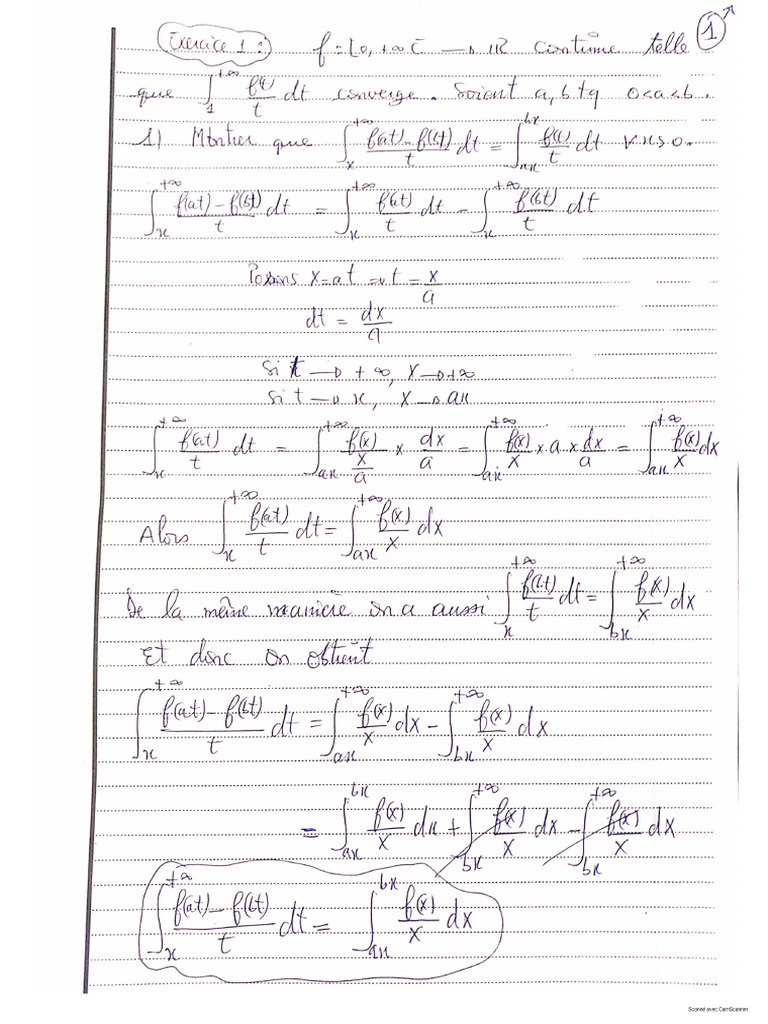 Exercice 1 : f : [0, +∞[ → ℝ continue telle ①
que ∫_1^{+∞} f(t)/t dt converge. Soient a, b tq 0<a<b.
1) Montrer que ∫_x^{+∞} (f(at) - f(bt))/t dt = ∫_{ax}^{bx} f(t)/t dt ∀x>0.
∫_x^{+∞} (f(at) - f(bt))/t dt = ∫_x^{+∞} f(at)/t dt - ∫_x^{+∞} f(bt)/t dt
Posons X = at ⇒ t = X/a
dt = dX/a
Si t → +∞, X → +∞
Si t → x, X → ax
∫_x^{+∞} f(at)/t dt = ∫_{ax}^{+∞} f(X)/(X/a) × dX/a = ∫_{ax}^{+∞} f(X)/X × a × dX/a = ∫_{ax}^{+∞} f(X)/X dX
Alors ∫_x^{+∞} f(at)/t dt = ∫_{ax}^{+∞} f(X)/X dX
De la même manière on a aussi ∫_x^{+∞} f(bt)/t dt = ∫_{bx}^{+∞} f(X)/X dX
Et donc on obtient
∫_x^{+∞} (f(at) - f(bt))/t dt = ∫_{ax}^{+∞} f(X)/X dX - ∫_{bx}^{+∞} f(X)/X dX
= ∫_{ax}^{bx} f(X)/X dx + ∫_{bx}^{+∞} f(X)/X dX - ∫_{bx}^{+∞} f(X)/X dX
∫_x^{+∞} (f(at) - f(bt))/t dt = ∫_{ax}^{bx} f(X)/X dX
Scanné avec CamScanner